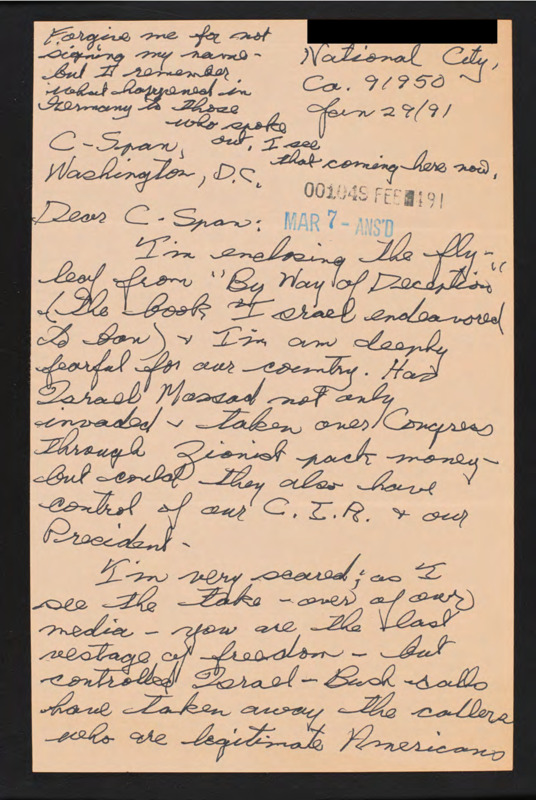 Forgive me for not
signing my name -
but I remember
what happened in
Germany to those
who spoke
out. I see
that coming here now.
National City,
Ca. 91950
Jan 29/91
C-Span,
Washington, D.C.
001049 FEB 191
MAR 7 - ANS'D
Dear C-Span:
I'm enclosing the fly-
leaf from "By Way of Deception"
(The book Israel endeavored
to ban) & I'm am deeply
fearful for our country. Has
Israel Massad not only
invaded & taken over Congress
through Zionist pack money -
but could they also have
control of our C.I.A. & our
Precident -
I'm very scared; as I
see the take-over of our
media - you are the last
vestage of freedom - but
controlled Israel-Bush calls
have taken away the callers
who are legitimate Americans